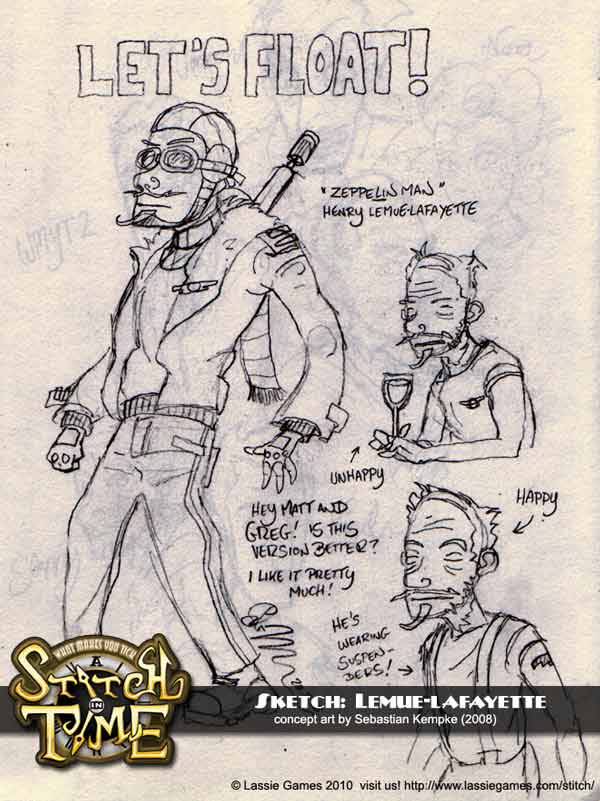 LET'S FLOAT!
"ZEPPELIN MAN"
HENRY LEMUE-LAFAYETTE
WMYT 2
UNHAPPY
HAPPY
HEY MATT AND
GREG! IS THIS
VERSION BETTER?
I LIKE IT PRETTY
MUCH!
HE'S
WEARING
SUSPEN-
DERS!
WHAT MAKES YOU TICK
A
STITCH
IN
TIME
SKETCH: LEMUE-LAFAYETTE
concept art by Sebastian Kempke (2008)
© Lassie Games 2010 visit us! http://www.lassiegames.com/stitch/